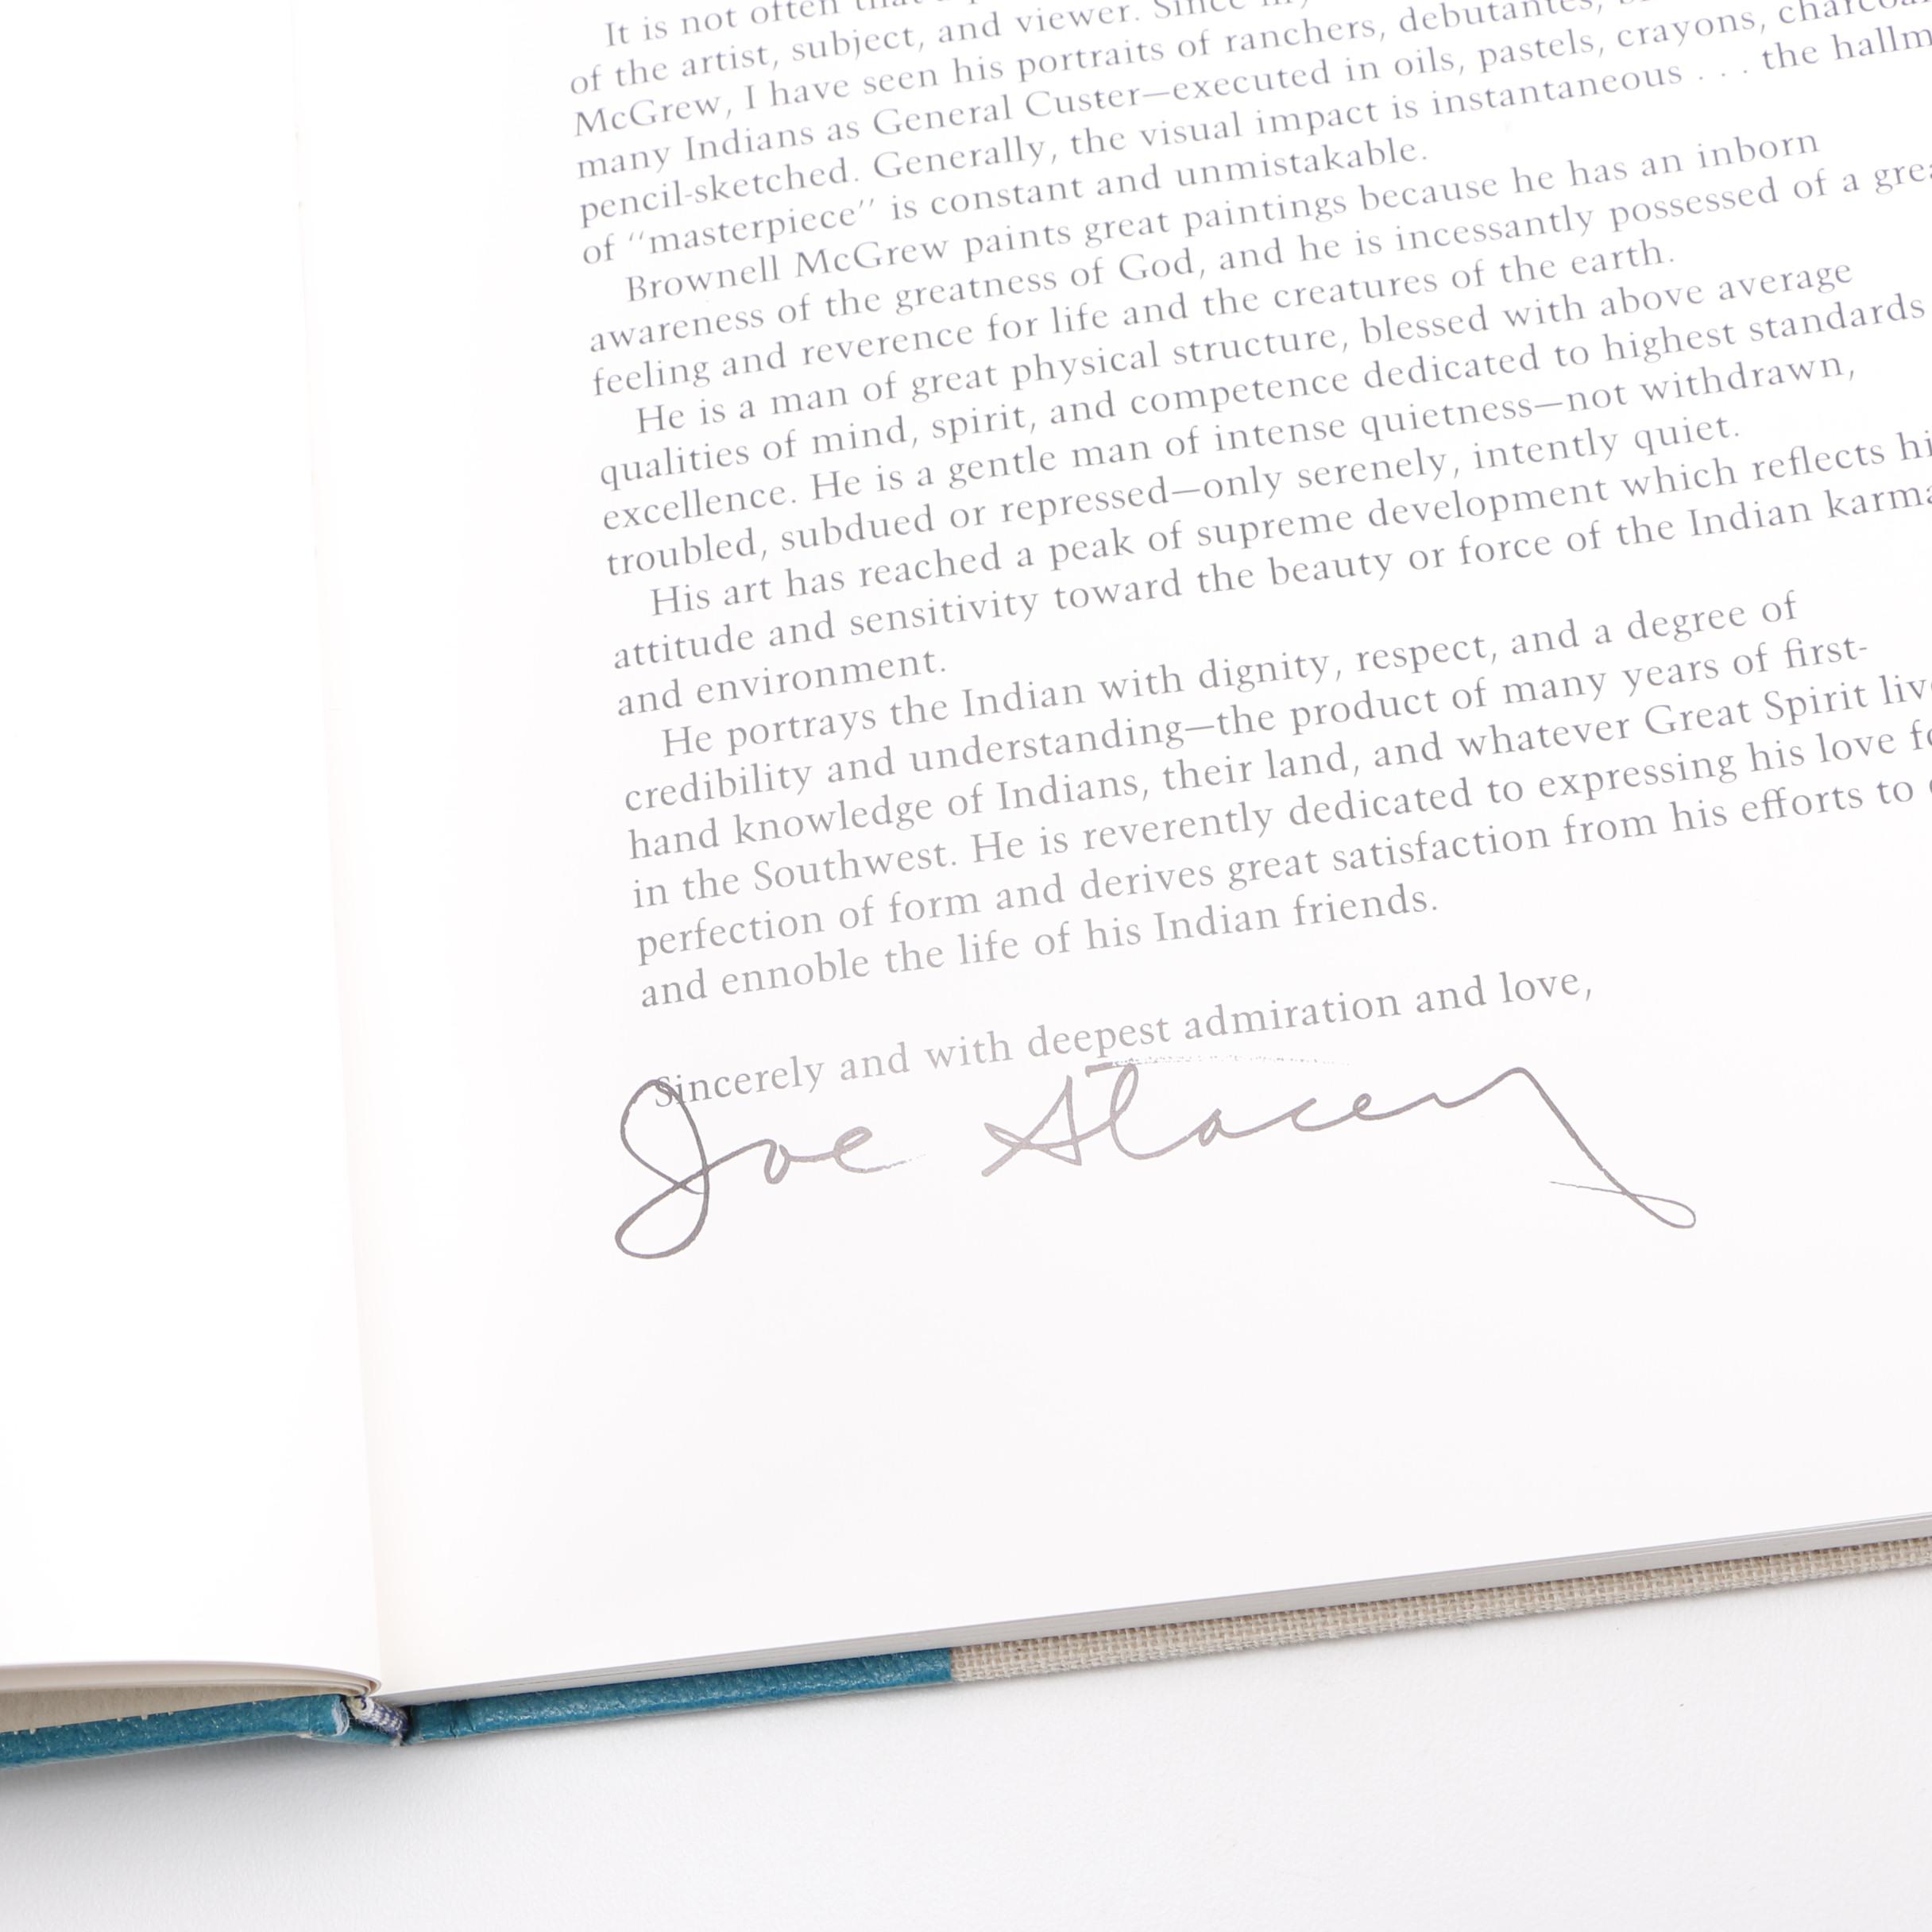 It is not often
of the artist, subject, and viewer. Since
McGrew, I have seen his portraits of ranchers, debutantes,
many Indians as General Custer—executed in oils, pastels, crayons,
pencil-sketched. Generally, the visual impact is instantaneous . . . the
of "masterpiece" is constant and unmistakable.
Brownell McGrew paints great paintings because he has an inborn
awareness of the greatness of God, and he is incessantly possessed of a
feeling and reverence for life and the creatures of the earth.
He is a man of great physical structure, blessed with above average
qualities of mind, spirit, and competence dedicated to highest standards
excellence. He is a gentle man of intense quietness—not withdrawn,
troubled, subdued or repressed—only serenely, intently quiet.
His art has reached a peak of supreme development which reflects
attitude and sensitivity toward the beauty or force of the Indian karma
and environment.
He portrays the Indian with dignity, respect, and a degree of
credibility and understanding—the product of many years of first-
hand knowledge of Indians, their land, and whatever Great Spirit
in the Southwest. He is reverently dedicated to expressing his love
perfection of form and derives great satisfaction from his efforts to
and ennoble the life of his Indian friends.
Sincerely and with deepest admiration and love,
Joe Stacey